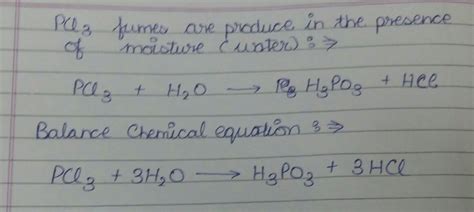 PCl₃ fumes are produce in the presence
of moisture (water) :⇒
PCl₃ + H₂O ⟶ H₃PO₃ + HCl
Balance Chemical equation :⇒
PCl₃ + 3H₂O ⟶ H₃PO₃ + 3HCl